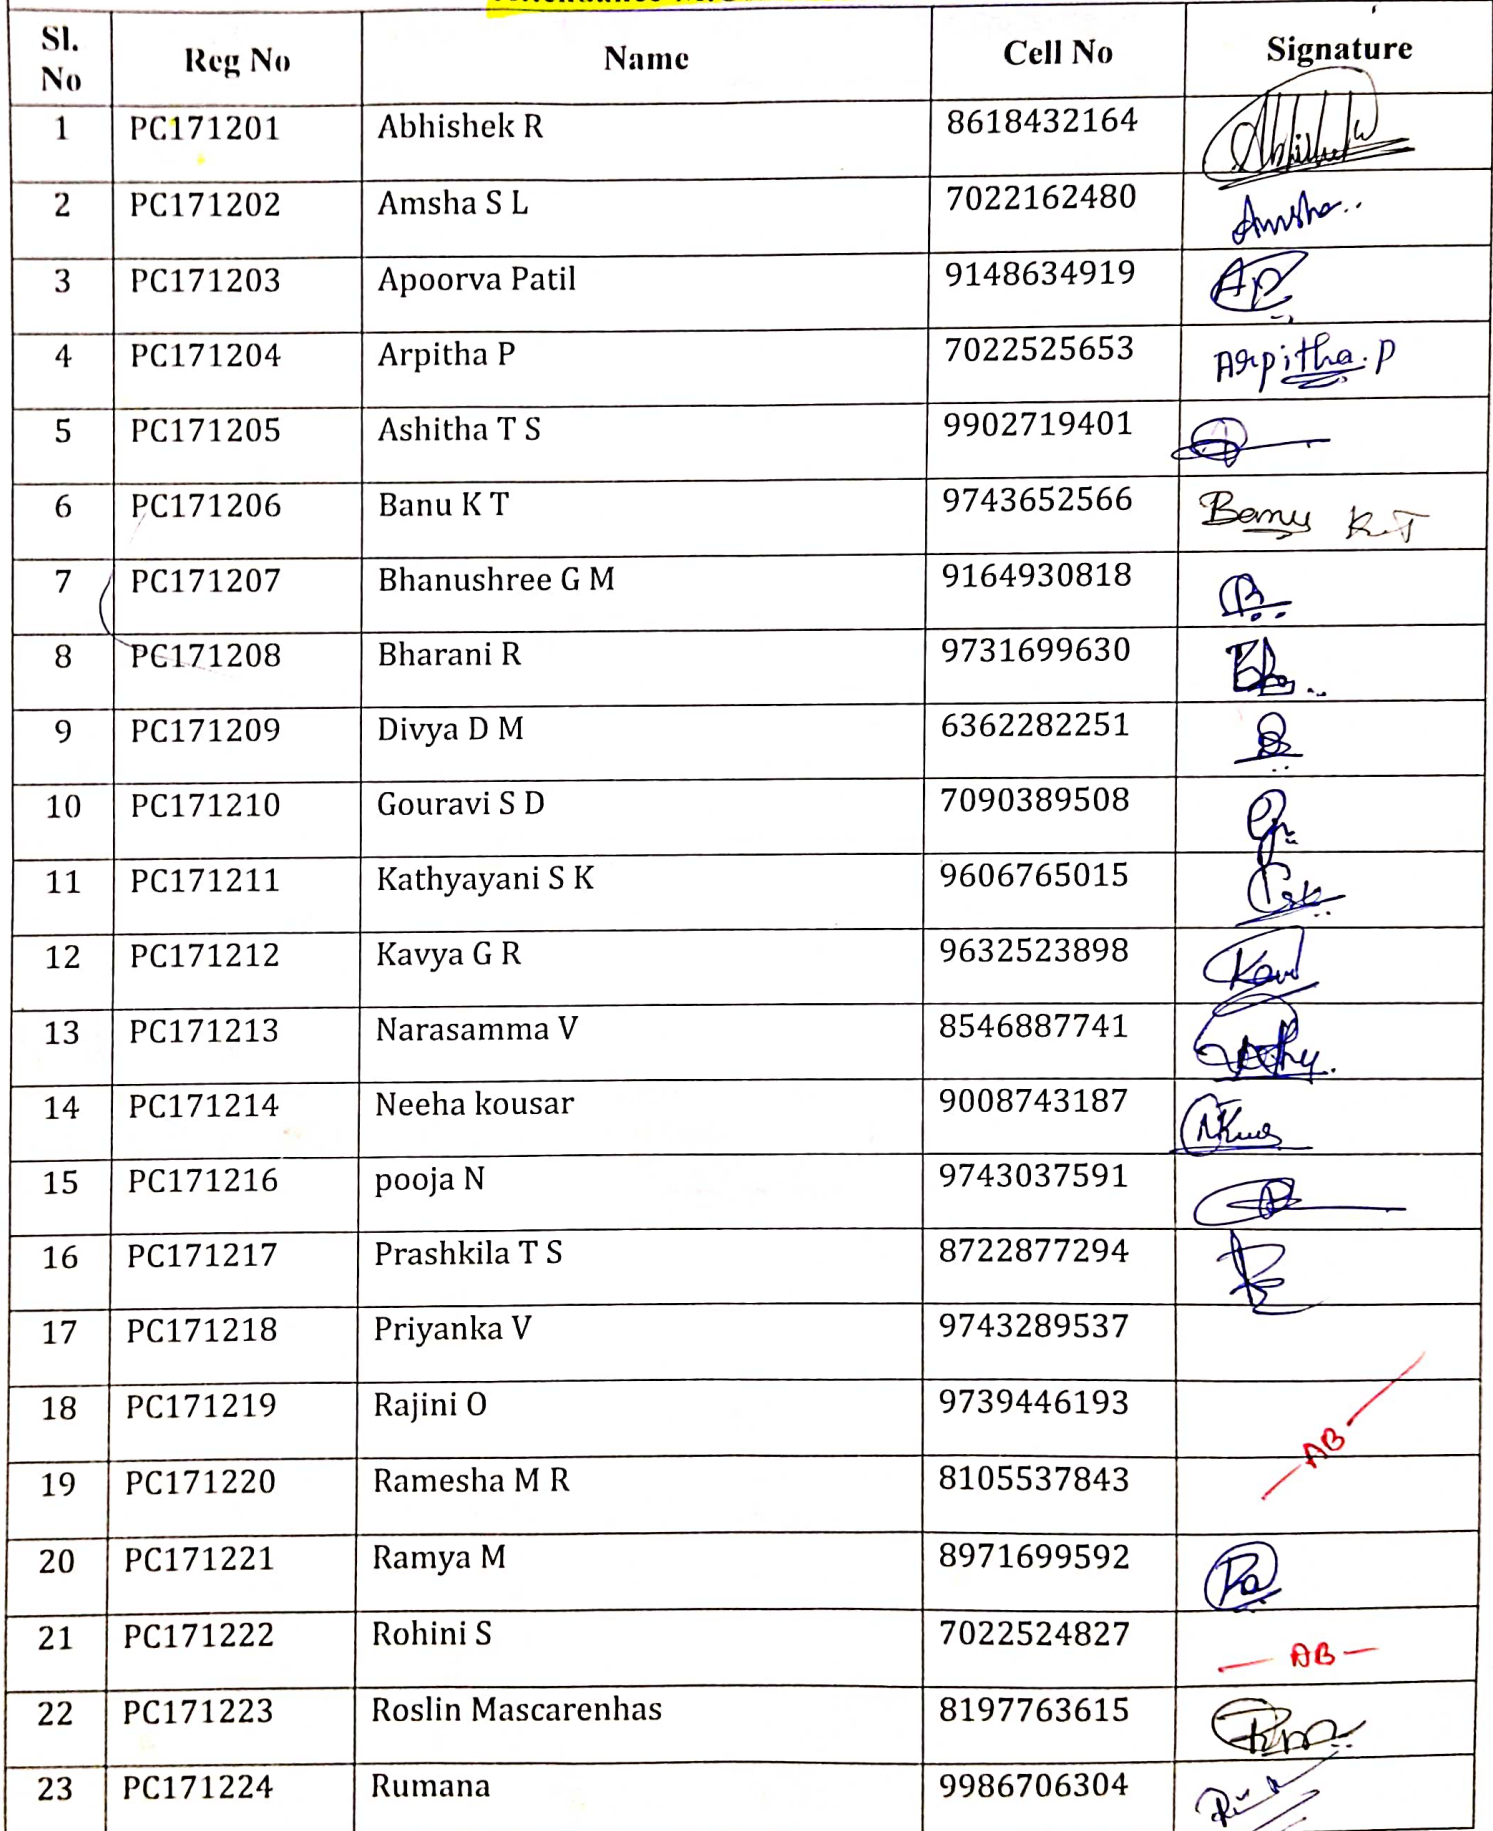 Sl. No Reg No Name Cell No Signature
1 PC171201 Abhishek R 8618432164
2 PC171202 Amsha S L 7022162480 Amsha..
3 PC171203 Apoorva Patil 9148634919 AP
4 PC171204 Arpitha P 7022525653 Arpitha.P
5 PC171205 Ashitha T S 9902719401
6 PC171206 Banu K T 9743652566 Banu K.T
7 PC171207 Bhanushree G M 9164930818 B
8 PC171208 Bharani R 9731699630
9 PC171209 Divya D M 6362282251
10 PC171210 Gouravi S D 7090389508
11 PC171211 Kathyayani S K 9606765015
12 PC171212 Kavya G R 9632523898
13 PC171213 Narasamma V 8546887741
14 PC171214 Neeha kousar 9008743187
15 PC171216 pooja N 9743037591
16 PC171217 Prashkila T S 8722877294
17 PC171218 Priyanka V 9743289537
18 PC171219 Rajini O 9739446193
— AB —
19 PC171220 Ramesha M R 8105537843
20 PC171221 Ramya M 8971699592 Ra
21 PC171222 Rohini S 7022524827 — AB —
22 PC171223 Roslin Mascarenhas 8197763615
23 PC171224 Rumana 9986706304